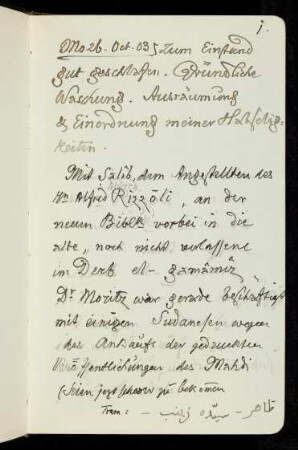 1.
Mo 26. Oct. 03 Zum Einstand
gut geschlafen. Gründliche
Waschung. Ausräumung
& Einordnung meiner Habselig-
keiten.
Mit Salib, dem Angestellten des
Hn Alfred Rizzoli, an der
neuen Biblk vorbei in die
alte, noch nicht verlassene
im Derb el-gamâmîz
Dr Moritz war gerade beschäftigt
mit einigen Sudanesen wegen
des Ankaufs der gedruckten
Veröffentlichungen des Mahdi
(seien jetzt schwer zu bekommen
Tram: ظاهر - سيده زينب -